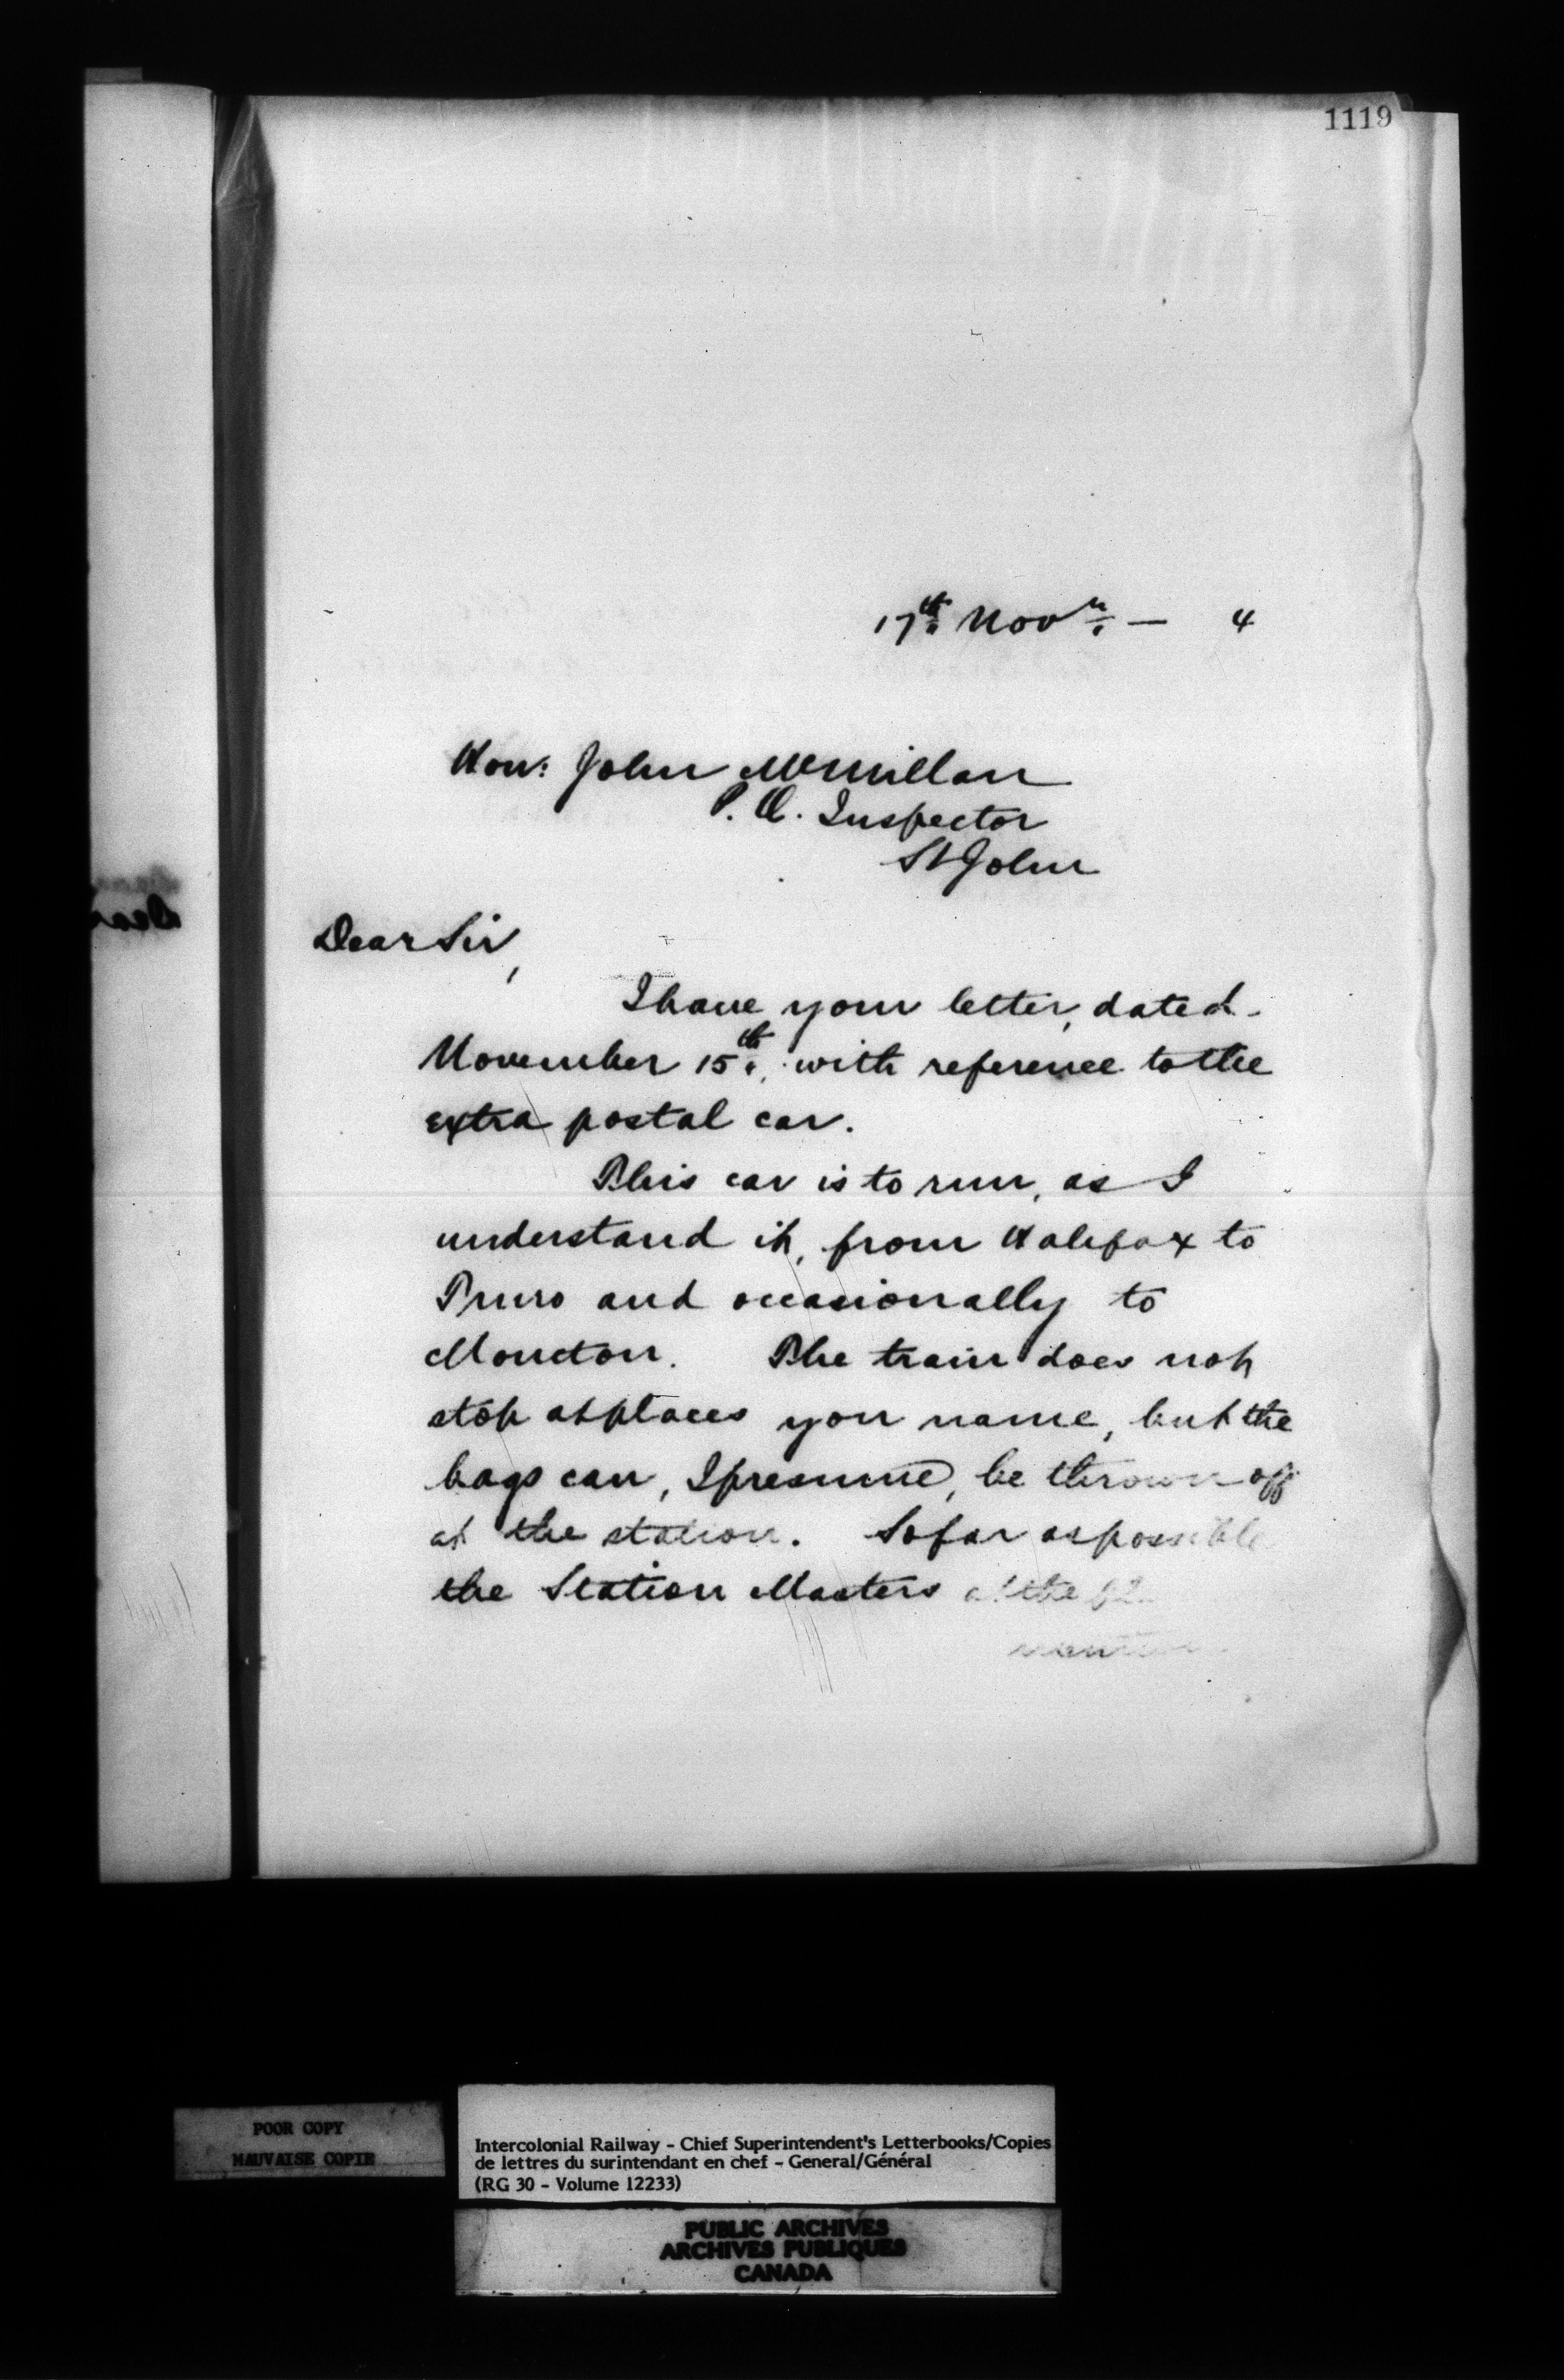 1119
17th Novr. — 4
Hon: John McMillan
P.O. Inspector
St John
Dear Sir,
I have your letter, dated
November 15th, with reference to the
extra postal car.
This car is to run, as I
understand it, from Halifax to
Truro and occasionally to
Moncton. The train does not
stop at places you name, but the
bags can, I presume, be thrown off
at the station. So far as possible
the Station Masters at the
POOR COPY
MAUVAISE COPIE
Intercolonial Railway - Chief Superintendent's Letterbooks/Copies
de lettres du surintendant en chef - General/Général
(RG 30 - Volume 12233)
PUBLIC ARCHIVES
ARCHIVES PUBLIQUES
CANADA